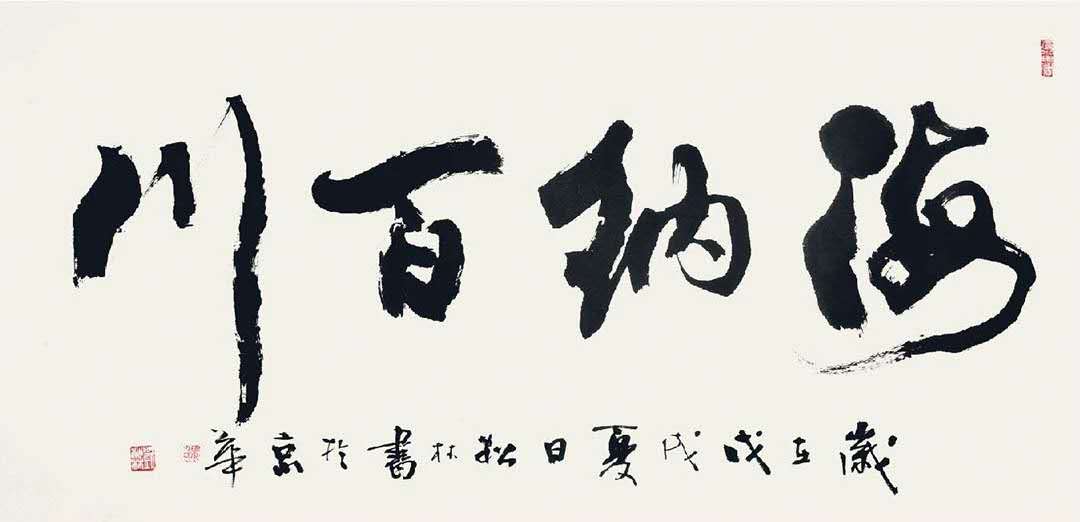 海納百川
歲在戊戌夏日松林書於京華